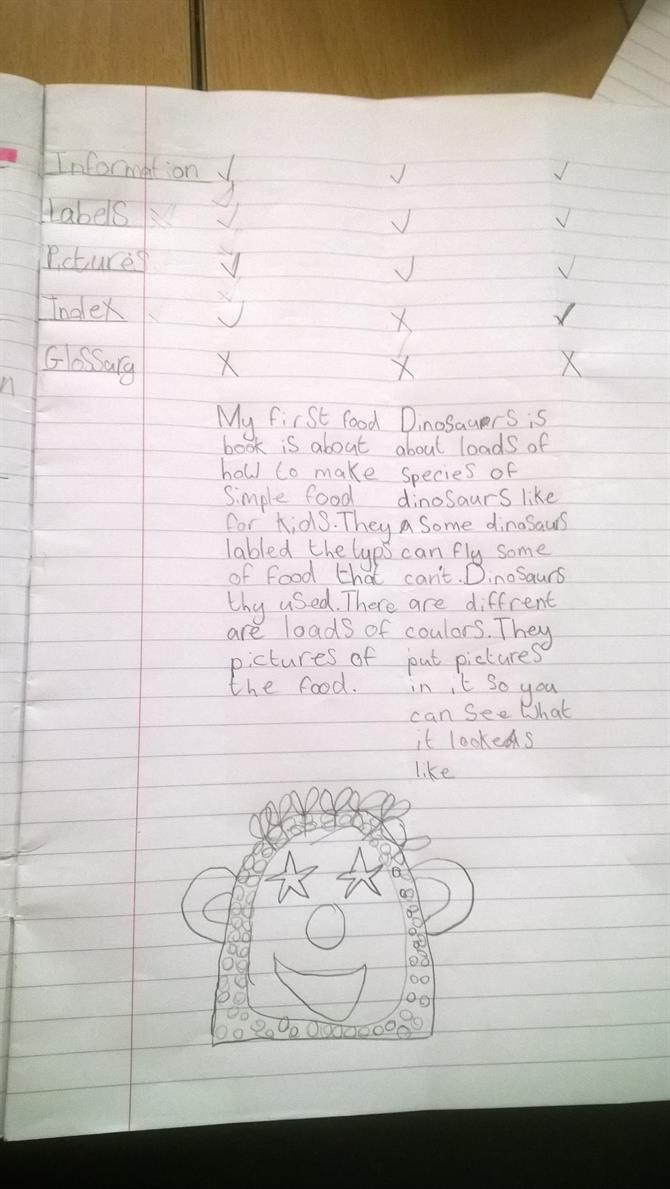 Information ✓ ✓ ✓
Labels ✓ ✓ ✓
Pictures ✓ ✓ ✓
Index ✓ X ✓
Glossarg X X X
My first food
book is about
how to make
Simple food
for kids. They
labled the typs
of food that
thy used. There
are loads of
pictures of
the food.
Dinosauers is
about loads of
species of
dinosaurs like
Some dinosaus
can fly some
can't. Dinosaurs
are diffrent
coulors. They
put pictures
in it so you
can see what
it lookes
like
n